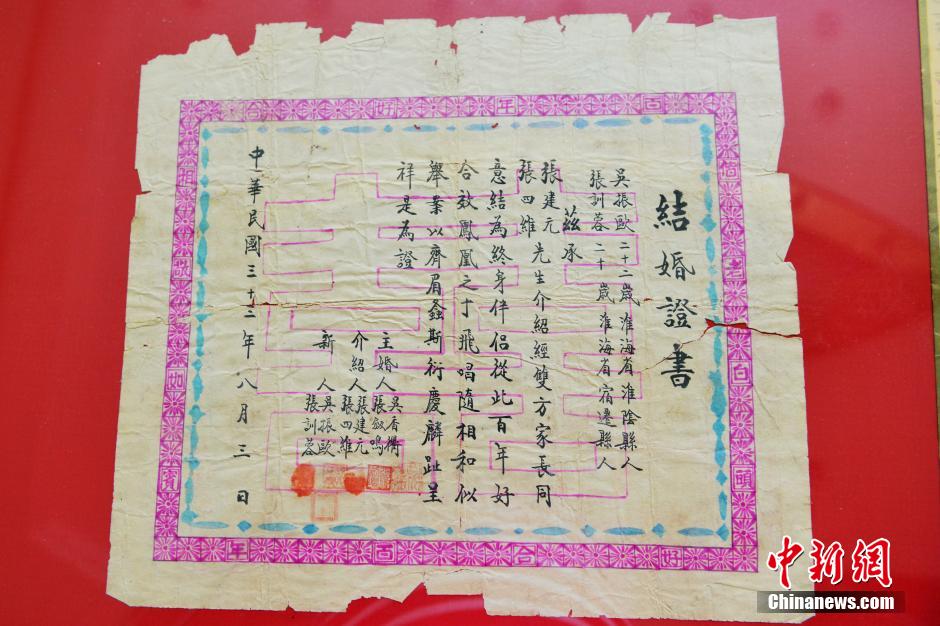 百年好合
偕老白頭
結婚證書
吳振歐二十二歲淮海省淮陰縣人
張訓蓉二十歲淮海省宿遷縣人
茲承
張建元
張四維
先生介紹經雙方家長同
意結為終身伴侶從此百年好
合效鳳凰之于飛唱隨相和似
舉案以齊眉螽斯衍慶麟趾呈
祥是為證
主婚人 吳香衢
張叙鳴
介紹人 張建元
張四維
新人 吳振歐
張訓蓉
中華民國三十二年八月三日
相敬如賓
好合百年
中新網
Chinanews.com